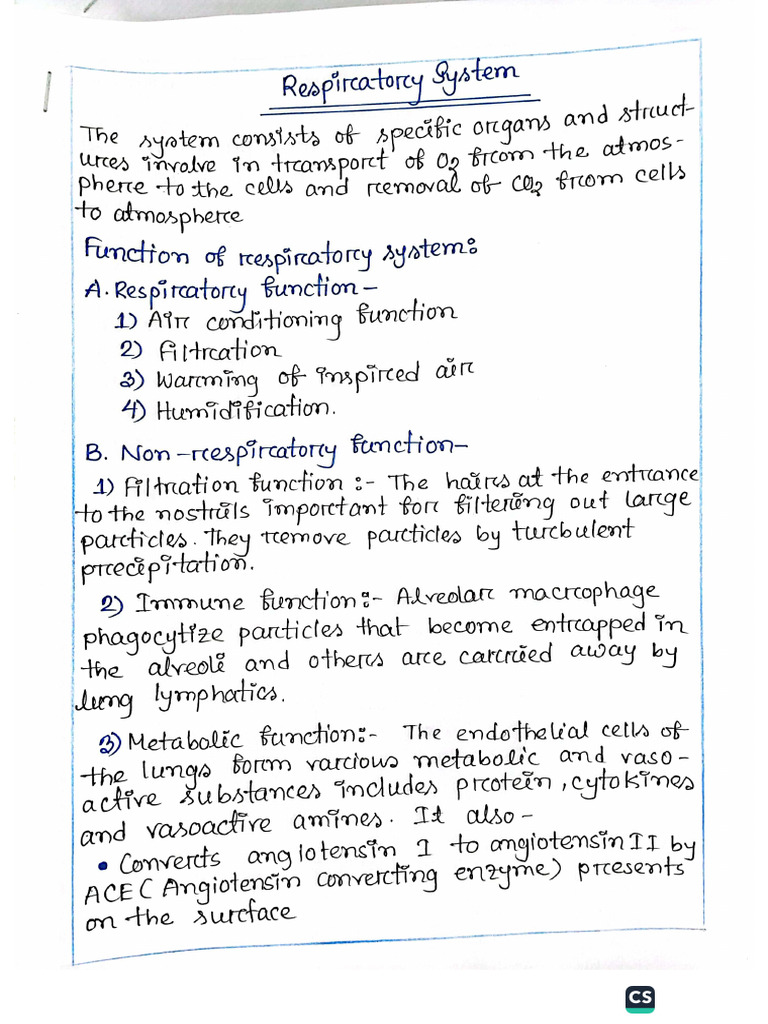 Respiratory System
The system consists of specific organs and struct-
ures involve in transport of O2 from the atmos-
phere to the cells and removal of CO2 from cells
to atmosphere
Function of respiratory system:
A. Respiratory function -
1) Air conditioning function
2) Filtration
3) Warming of inspired air
4) Humidification.
B. Non-respiratory function-
1) Filtration function :- The hairs at the entrance
to the nostrils important for filtering out large
particles. They remove particles by turbulent
precipitation.
2) Immune function:- Alveolar macrophage
phagocytize particles that become entrapped in
the alveoli and others are carried away by
lung lymphatics.
3) Metabolic function:- The endothelial cells of
the lungs form various metabolic and vaso-
active substances includes protein, cytokines
and vasoactive amines. It also -
• Converts angiotensin I to angiotensin II by
ACE (Angiotensin converting enzyme) presents
on the surface
CS